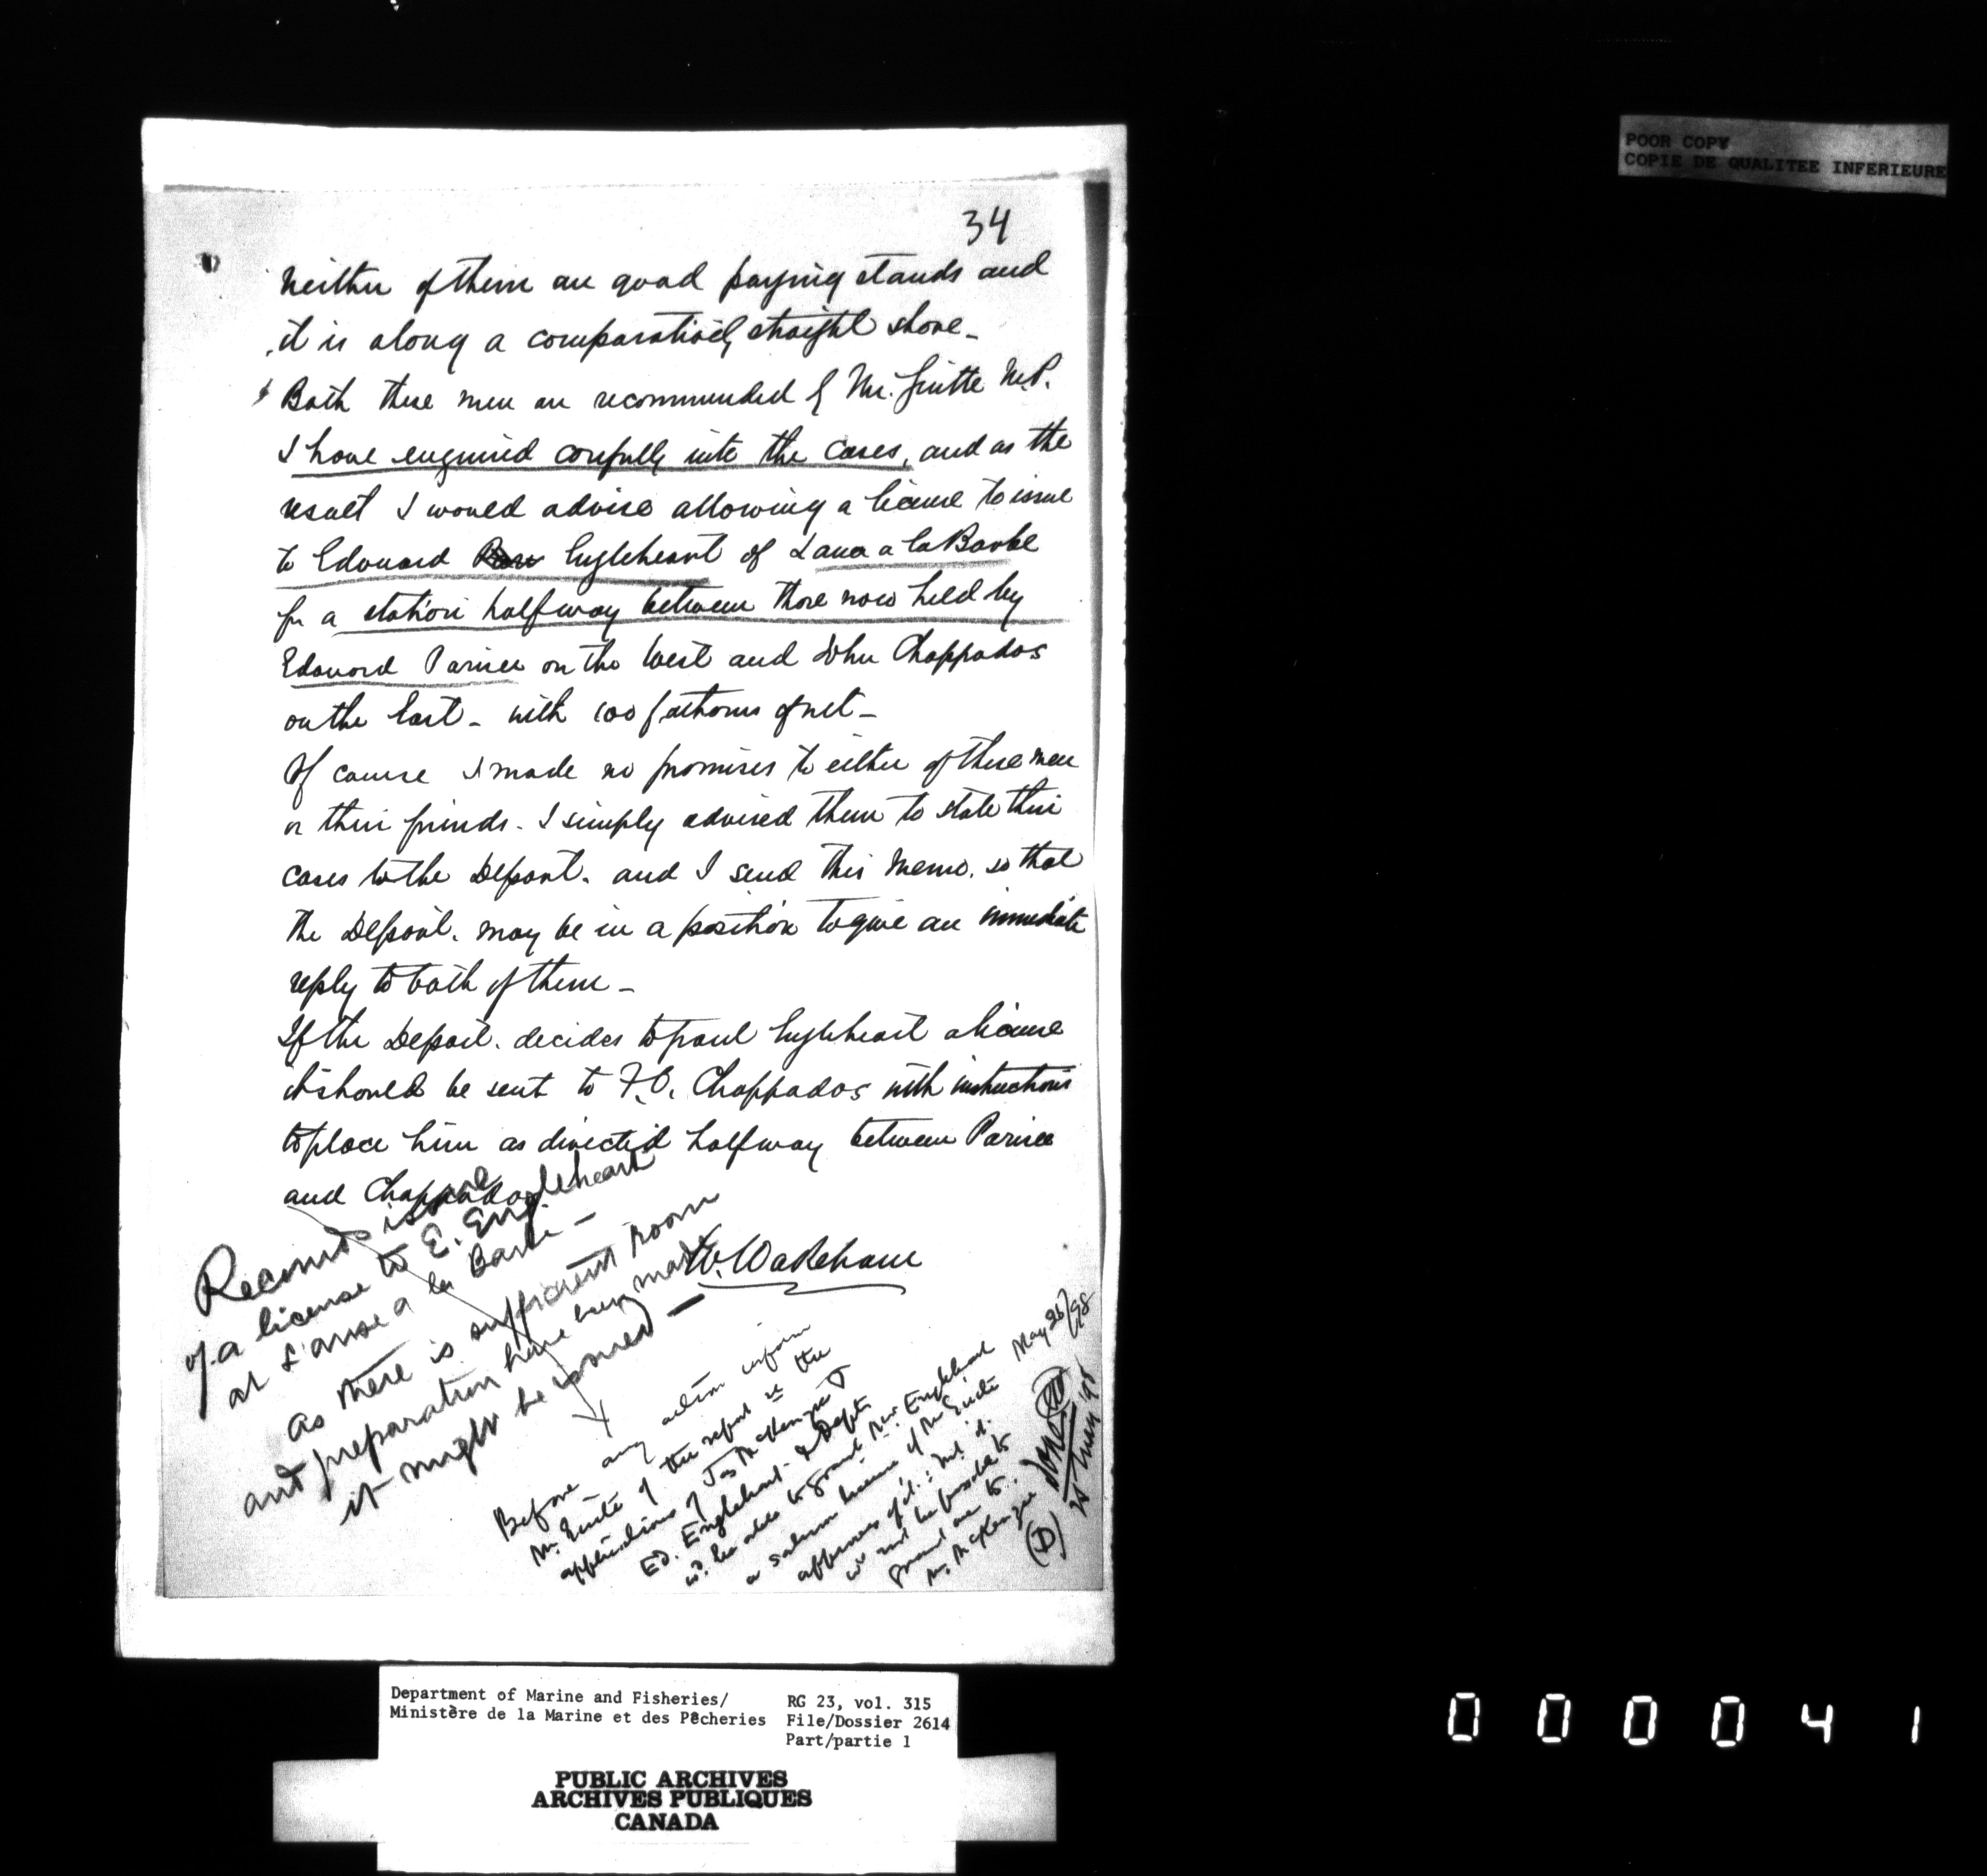 POOR COPY
COPIE DE QUALITEE INFERIEURE
34
Neither of them are good paying stands and
it is along a comparatively straight shore_
Both these men are recommended by Mr. M.P.
I have enquired carefully into the cases, and as the
result I would advise allowing a license to issue
to Edouard Engleheart of Lance a la Barbe
for a station halfway between those now held by
Edouard Parisee on the West and John Chappados
on the East_ with 100 fathoms of net_
Of course I made no promises to either of these men
or their friends. I simply advised them to state their
cases to the Depart. and I send this Memo. so that
the Depart. may be in a position to give an immediate
reply to both of them_
If the Depart. decides to grant Engleheart a license
it should be sent to F.O. Chappados with instructions
to place him as directed halfway between Parisee
and Chappados.
W. Wakeham
Recomd issue
of a license to E. Engleheart
at L'anse a la Barbe –
as there is sufficient room
and preparation have been made
it might be issued –
Before any action inform
Mr. of the report re the
applications of Jas McKenzie &
Ed. Englehart. Dept
w. be able to grant Mr. Englehart
a salmon license if Mr.
approves of it: but it
w. not be possible to
grant one to
Mr. McKenzie
May 26/98
done
(D)
Department of Marine and Fisheries/
Ministère de la Marine et des Pêcheries
RG 23, vol. 315
File/Dossier 2614
Part/partie 1
PUBLIC ARCHIVES
ARCHIVES PUBLIQUES
CANADA
000041